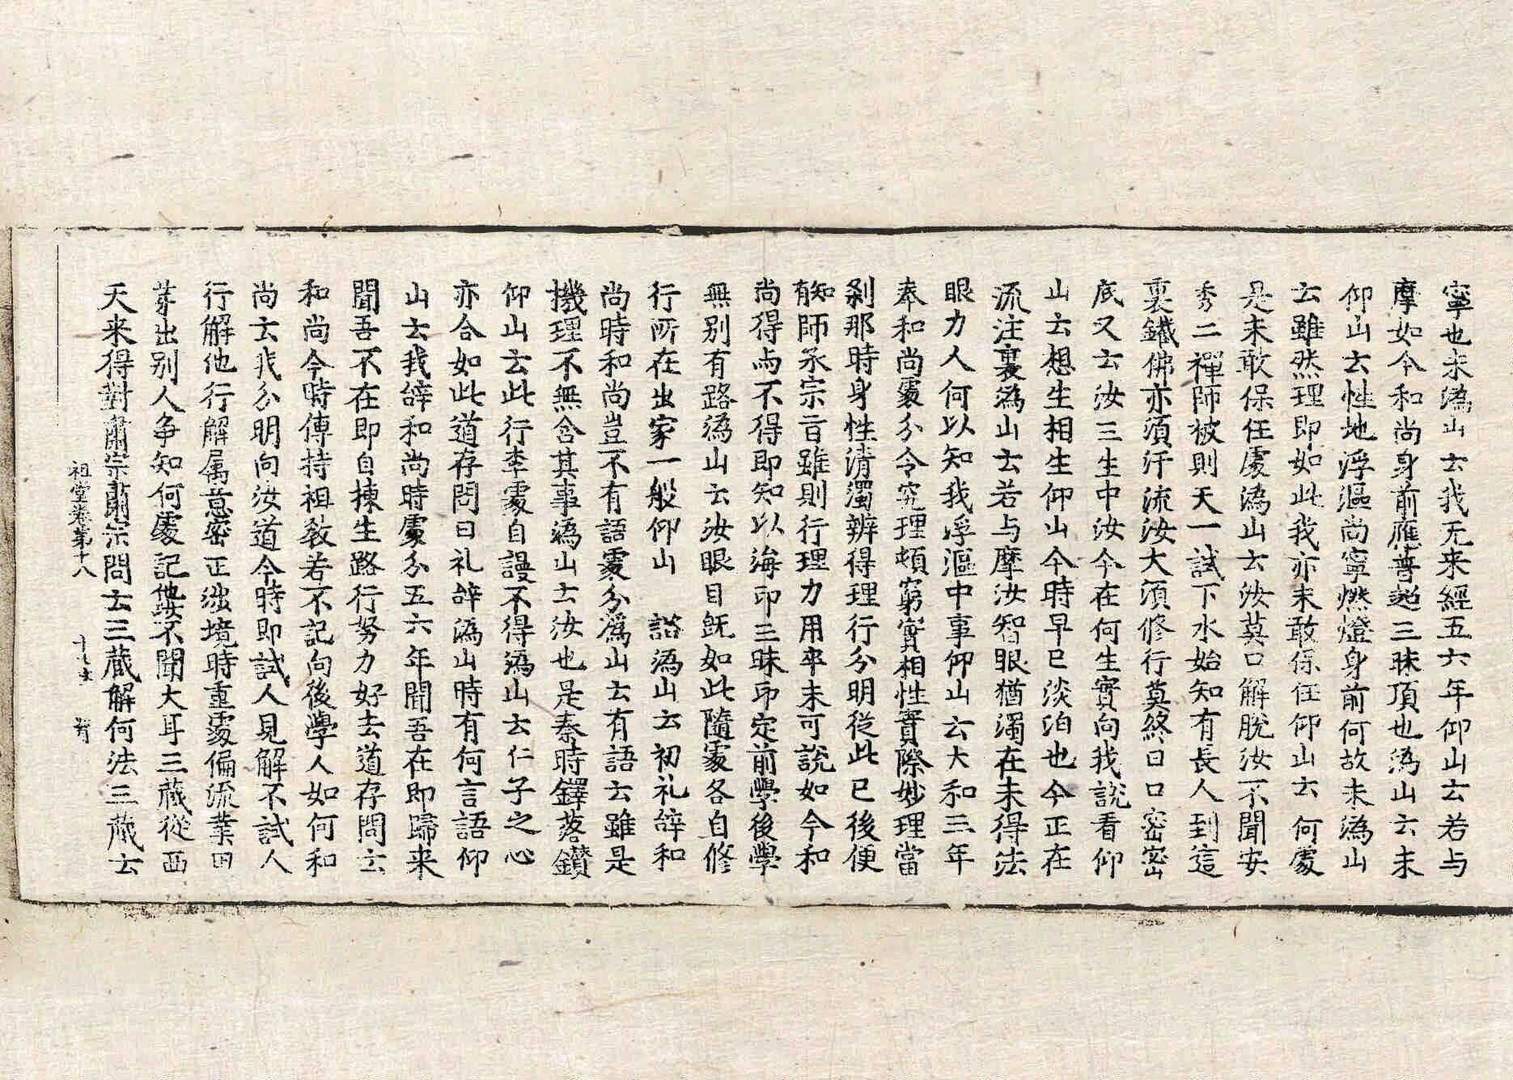 寧也未溈山云我无来經五六年仰山云若与
摩如今和尚身前應普超三昧頂也溈山云未
仰山云性地浮漚尚寧燃燈身前何故未溈山
云雖然理即如此我亦未敢保任仰山云何處
是未敢保任處溈山云汝莫口解脫汝不聞安
秀二禪師被則天一試下水始知有長人到這
裏鐵佛亦須汗流汝大須修行莫終日口密密
底又云汝三生中汝今在何生實向我說看仰
山云想生相生仰山今時早已淡泊也今正在
流注裏溈山云若与摩汝智眼猶濁在未得法
眼力人何以知我浮漚中事仰山云大和三年
奉和尚處分令究理頓窮實相性實際妙理當
剎那時身性清濁辨得理行分明從此已後便
有知師承宗旨雖則行理力用卒未可說如今和
尚得与不得即知以海印三昧印定前學後學
無別有路溈山云汝眼目既如此隨處各自修
行所在出家一般仰山　諮溈山云初礼辞和
尚時和尚豈不有語處分溈山云有語云雖是
機理不無含其事溈山云汝也是秦時鐸落鑽
仰山云此行李處自謾不得溈山云仁子之心
亦合如此道存問曰礼辞溈山時有何言語仰
山云我辞和尚時處分五六年聞吾在即歸来
聞吾不在即自揀生路行努力好去道存問云
和尚今時傳持祖教若不記向後學人如何和
尚云我分明向汝道今時即試人見解不試人
行解他行解属意密正澁境時重處偏流業田
芽出别人争知何處記他娑不聞大耳三藏從西
天来得對肅宗肅宗問云三藏解何法三藏云
祖堂卷第十八